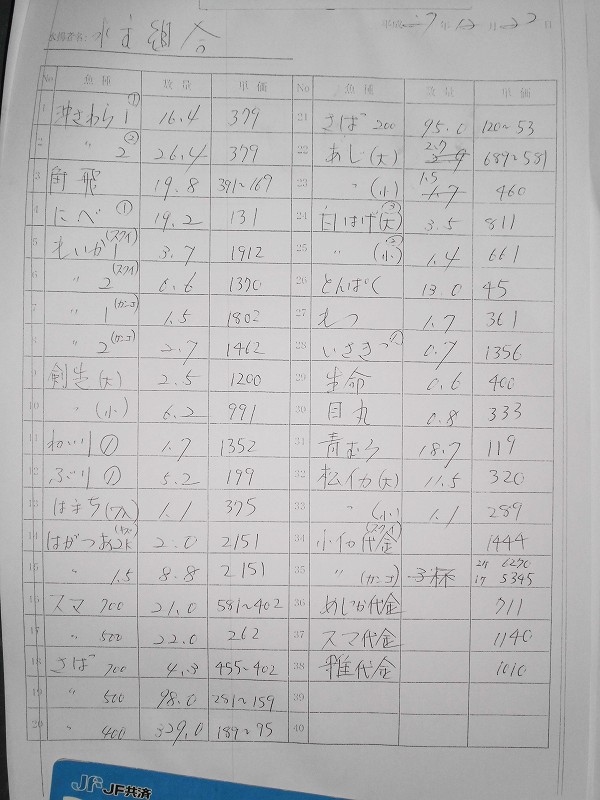 平成 27年12月22日
水揚者名: 水主組合
No 魚種 数量 単価 No 魚種 数量 単価
1 沖さわら1① 16.4 379 21 さば 200 95.0 120~53
2 〃 2② 26.4 379 22 あじ(大) 2.7 689~581
3 角飛 19.8 391~169 23 〃 (小) 1.5 460
4 にべ① 19.2 131 24 白はげ(大)③ 3.5 811
5 れいか1(スクイ) 3.7 1912 25 〃 (小)② 1.4 661
6 〃 2(スクイ) 6.6 1370 26 とんぱく 13.0 45
7 〃 1(カンコ) 1.5 1802 27 れつ 1.7 361
8 〃 2(カンコ) 2.7 1462 28 いさき 0.7 1356
9 剣先(大) 2.5 1200 29 生命 0.6 400
10 〃 (小) 6.2 991 30 目丸 0.8 333
11 ねいり① 1.7 1352 31 青むろ 18.7 119
12 ぶり① 5.2 199 32 松イカ(大) 11.5 320
13 はまち(7入) 1.1 375 33 〃 (小) 1.1 289
14 はがつお2k 2.0 2151 34 小イカ代金(スクイ) 1444
15 〃 1.5 8.8 2151 35 〃 (カンコ) 3杯 6270 5345
16 スマ 700 21.0 581~402 36 あじか代金 711
17 〃 500 22.0 262 37 スマ代金 1140
18 さば 700 4.3 455~402 38 雑代金 1010
19 〃 500 98.0 281~159 39
20 〃 400 329.0 189~95 40
JF JF共済